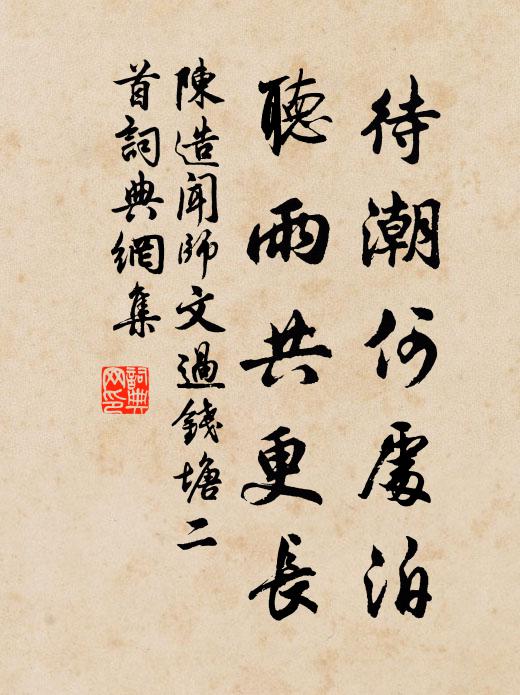 待潮何處泊
聽雨共更長
陳造聞師文過錢塘二
首詞典網集
詞典
网印